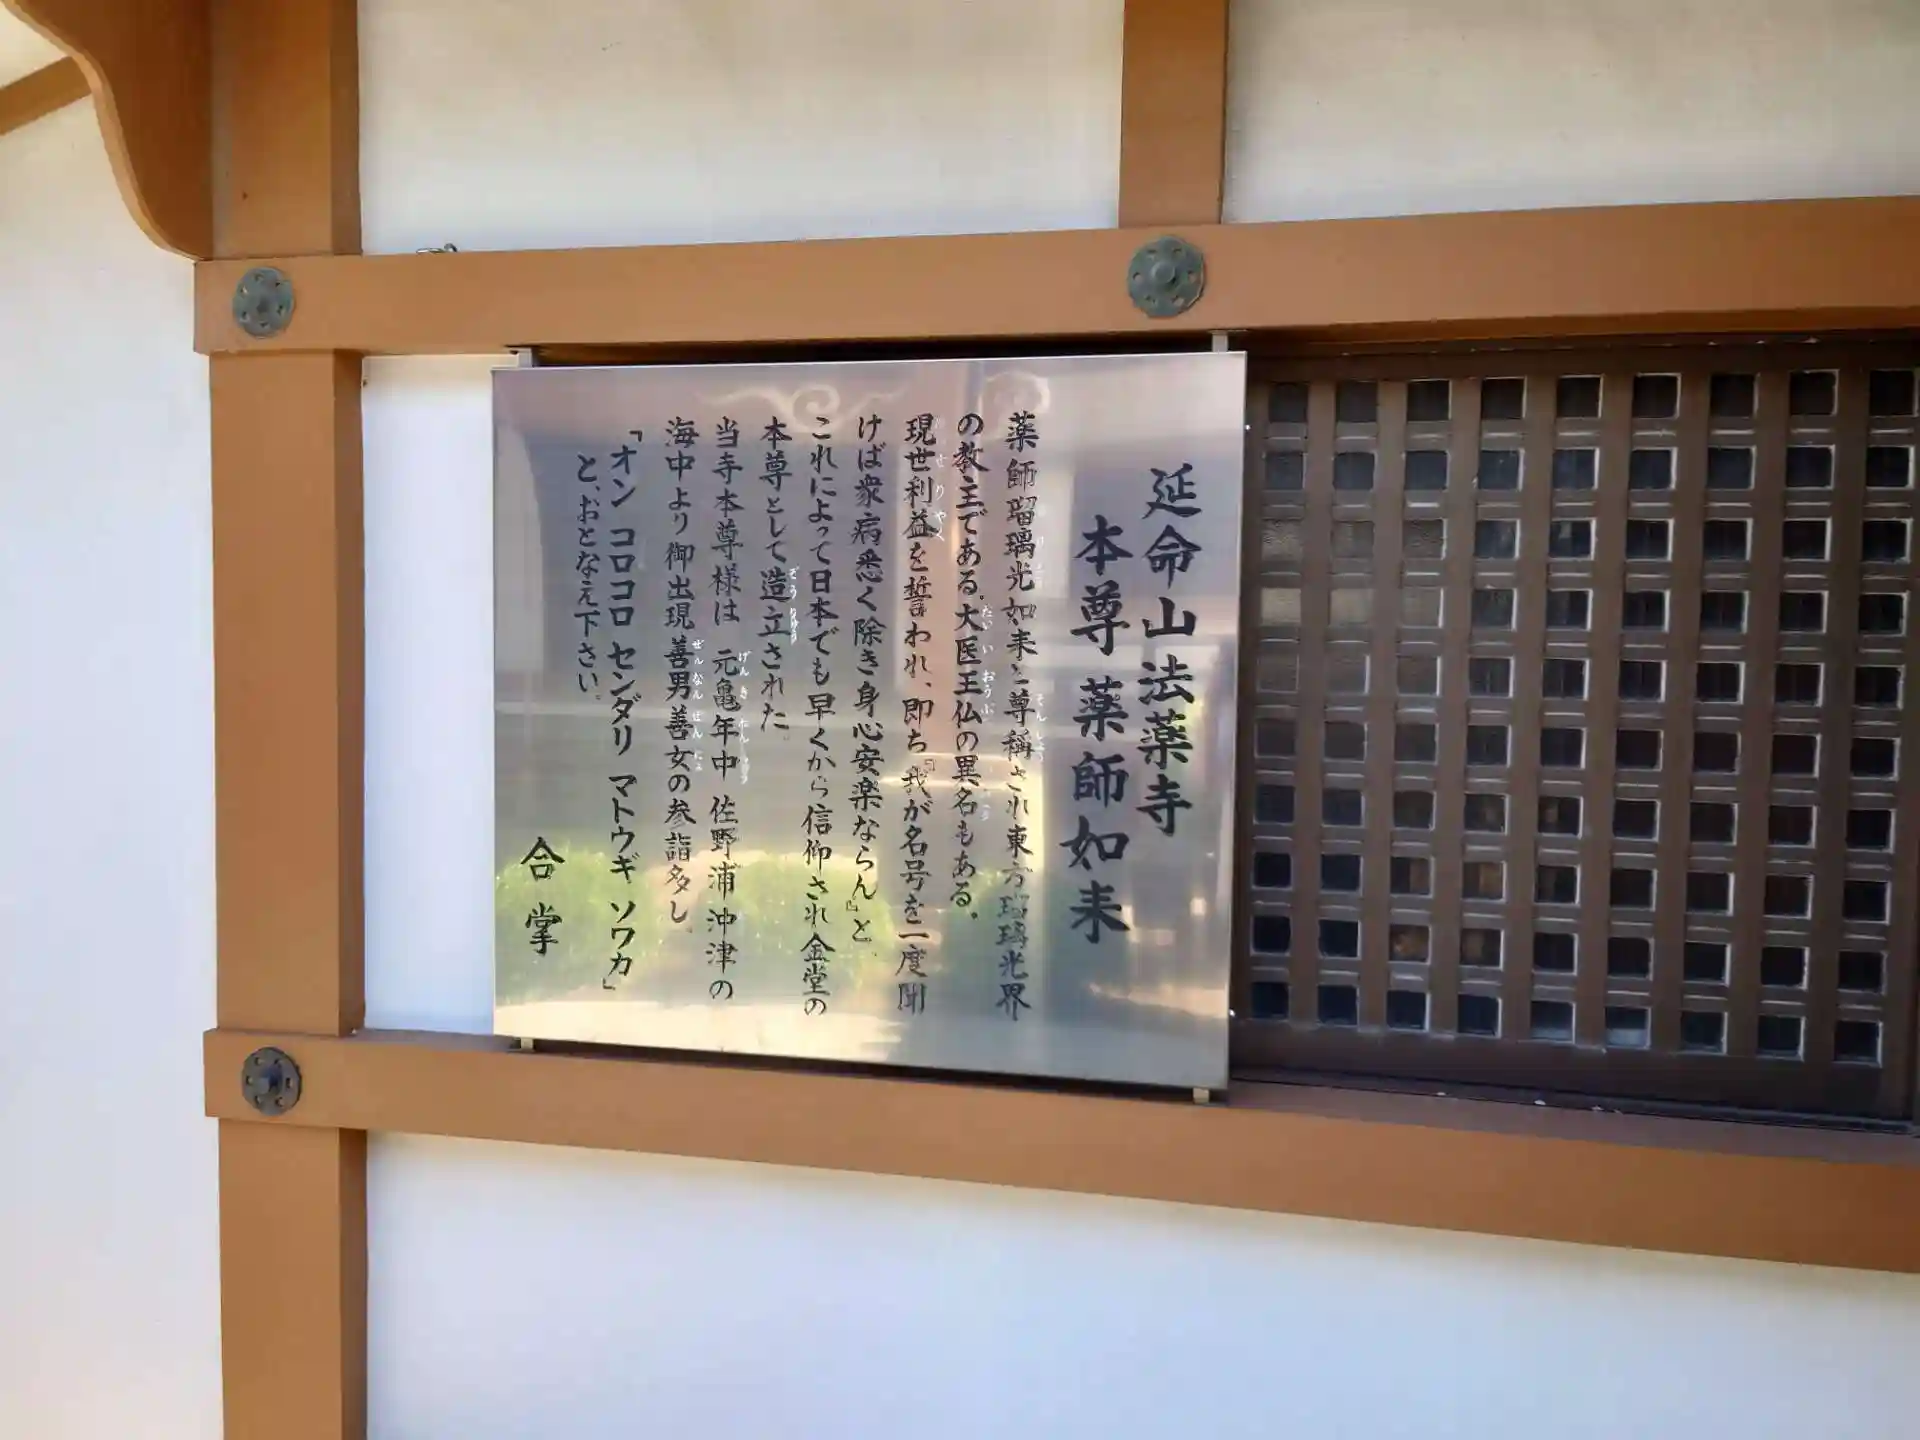 延命山法薬寺
本尊薬師如来
薬師瑠璃光如来と尊稱され東方瑠璃光界
の教主である。大医王仏の異名もある。
現世利益を誓われ、即ち『我が名号を一度聞
けば衆病悉く除き身心安楽ならん』と。
これによって日本でも早くから信仰され金堂の
本尊として造立された。
当寺本尊様は 元亀年中 佐野浦沖津の
海中より御出現善男善女の参詣多し。
「オン コロコロ センダリ マトウギ ソワカ」
と、おとなえ下さい。
合掌